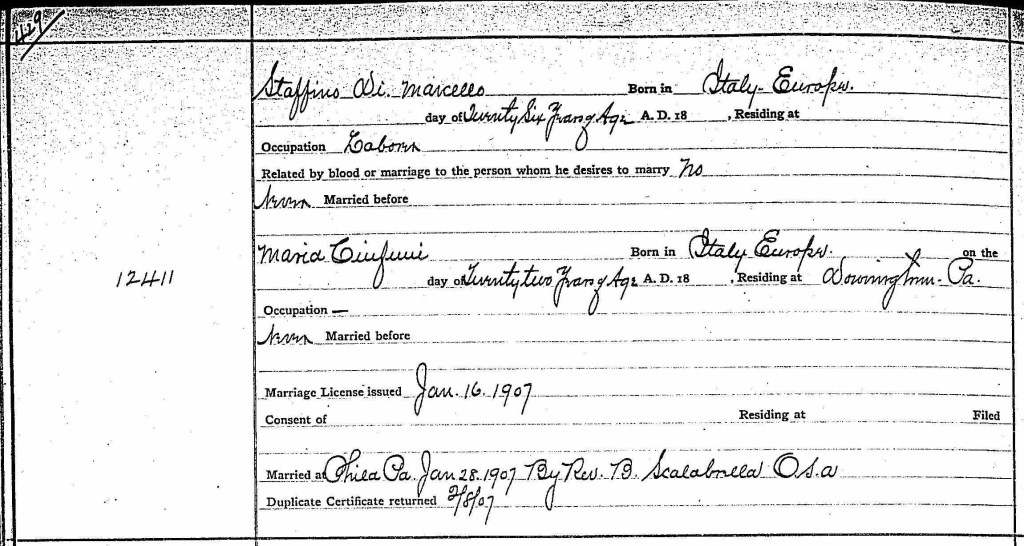 429
Staffino Di. Marcello Born in Italy-Europe.
day of Twenty Six Years of Age A. D. 18 , Residing at
Occupation Laborer
Related by blood or marriage to the person whom he desires to marry No
Never Married before
Maria Born in Italy Europe. on the
12411
day of Twenty two Years of Age A. D. 18 , Residing at Downingtown-Pa.
Occupation —
Never Married before
Marriage License issued Jan. 16. 1907
Consent of Residing at Filed
Married at Phila Pa. Jan 28. 1907 By Rev. B. Scalabrella O.S.a
Duplicate Certificate returned 2/8/07